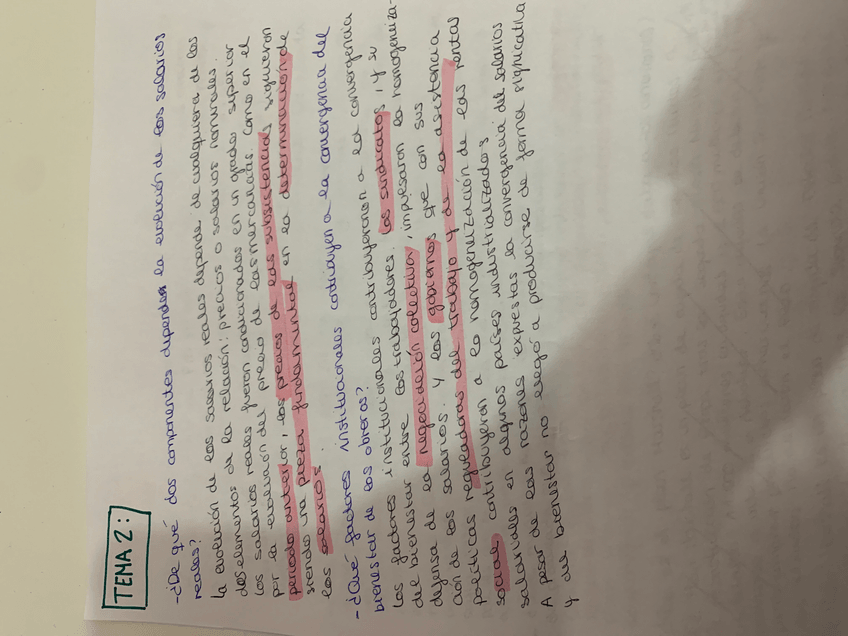 TEMA 2:
- ¿De qué dos componentes depende la evolución de los salarios
reales?
La evolución de los salarios reales depende de cualquiera de los
dos elementos de la relación: precios o salarios nominales.
Los salarios reales fueron condicionados en un grado superior
por la evolución del precio de las mercancías. Como en el
periodo anterior, los precios de las subsistencias siguieron
siendo una pieza fundamental en la determinación de
los salarios.
- ¿Qué factores institucionales contribuyen a la convergencia del
bienestar de los obreros?
Los factores institucionales contribuyeron a la convergencia
del bienestar entre los trabajadores. Los sindicatos, y su
defensa de la negociación colectiva, impulsaron la homogeniza-
ción de los salarios. Y los gobiernos que con sus
políticas reguladoras del trabajo y de la asistencia
social contribuyeron a la homogenización de las rentas
salariales en algunos países industrializados.
A pesar de las razones expuestas la convergencia del salarios
y del bienestar no llegó a producirse de forma significativa